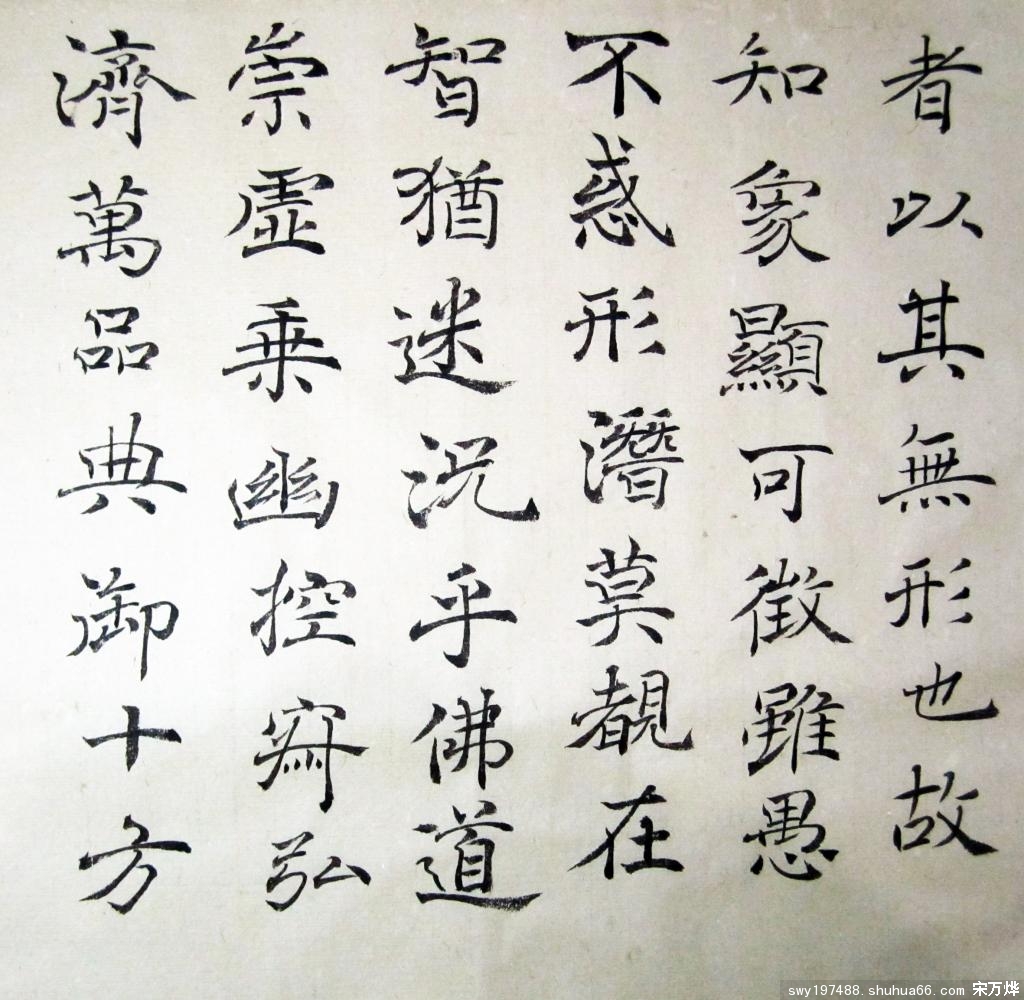 者以其無形也故
知象顯可徵雖愚
不惑形潛莫覩在
智猶迷況乎佛道
崇虛乗幽控寂弘
濟萬品典御十方
swy197488.shuhua66.com 宋万烨